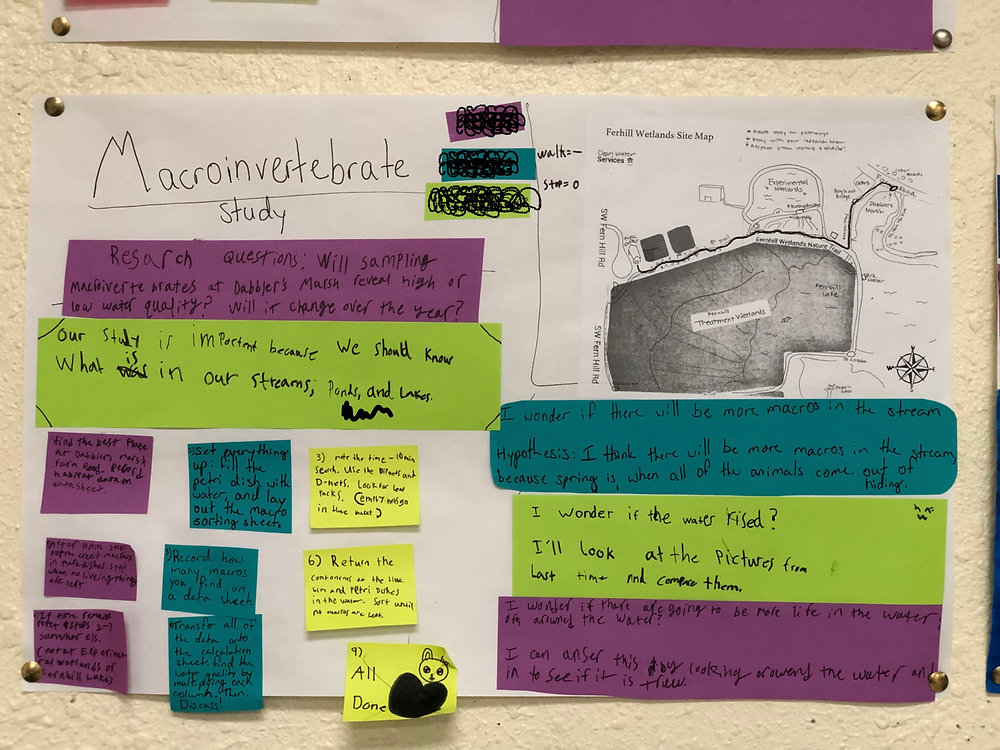 Macroinvertebrate
Study
walk= –
stop = 0
Resarch questions: Will sampling
macroivertebrates at Dabbler's Marsh reveal high or
low water quality? Will it change over the year?
Our study is important because we should know
What is in our streams, Ponds, and Lakes.
find the best Place
at Dabblers marsh
farm Road. Record
habitat data on
data sheet.
Set everything
up: fill the
petri dish with
water, and lay
out the macro
sorting sheet.
3) note the time – 10 min
search. Use the
D-nets. Look for leaf
packs.
in blue bucket)
After 10 min stop
macros
in
when no liveing things
are left
5) Record how
many macros
you find on
a data sheet
6) Return the
components of the blue
bin and Petri Dishes
in the water. Sort until
no macros are left.
If time
steps 2-7
(not at Experimen
tal wetlands or
Fernhill Lake)
Transfor all of
the data onto
the calculation
sheet. find the
water quality by
multiplying each
column. Then.
Discuss!
9)
All
Done
Ferhill Wetlands Site Map
* Please stay on pathways
* Stay with your research team
* Respect other visitors & wildlife!
Clean Water
Services
Experimental
Wetlands
Dabblers
Marsh
Fernhill Wetlands Nature Trail
SW Fern Hill Rd
Fernhill
Lake
Fernhill
Treatment Wetlands
SW Fern Hill Rd
I wonder if there will be more macros in the stream
Hypothesis: I think there will be more macros in the stream,
because spring is when all of the animals come out of
hiding.
I wonder if the water rised?
I'll look at the Pictures from
Last time and compare them.
I wonder if there are going to be more life in the water
or around the water?
I can anser this by looking arowend the water and
in to see if it is truw.